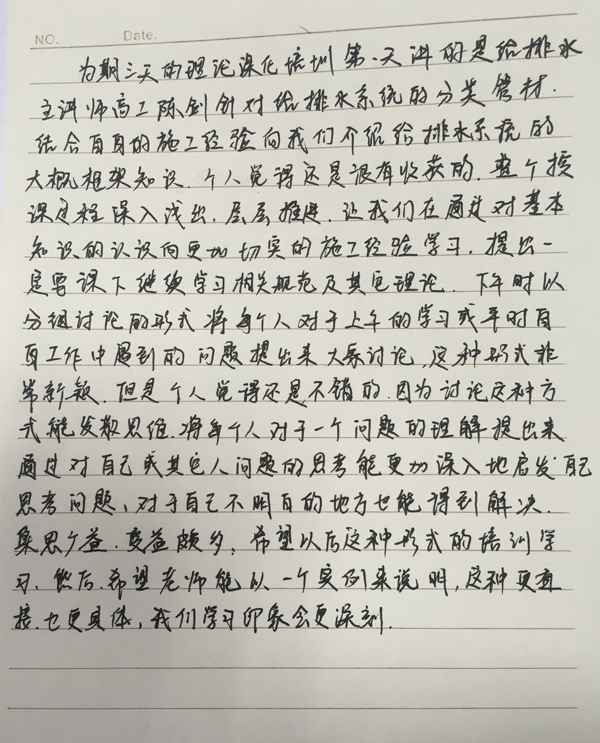 NO. Date.
为期三天的理论深化培训第一天讲的是给排水
主讲师高工陈剑针对给排水系统的分类管材.
结合自身的施工经验向我们介绍给排水系统的
大概框架知识.个人觉得还是很有收获的.整个授
课过程深入浅出.层层推进.让我们在通过对基本
知识的认识向更加切实的施工经验学习.提出一
定要课下继续学习相关规范及其它理论.下午时以
分组讨论的形式将每个人对于上午的学习或平时自
身工作中遇到的问题提出来大家讨论,这种形式非
常新颖.但是个人觉得还是不错的.因为讨论这种方
式能发散思维.将每个人对于一个问题的理解提出来
通过对自己或其它人问题的思考能更加深入地启发自己
思考问题,对于自己不明白的地方也能得到解决.
集思广益.受益颇多,希望以后这种形式的培训学
习.然后.希望老师能以一个实例来说明,这种更直
接.也更具体,我们学习印象会更深刻.